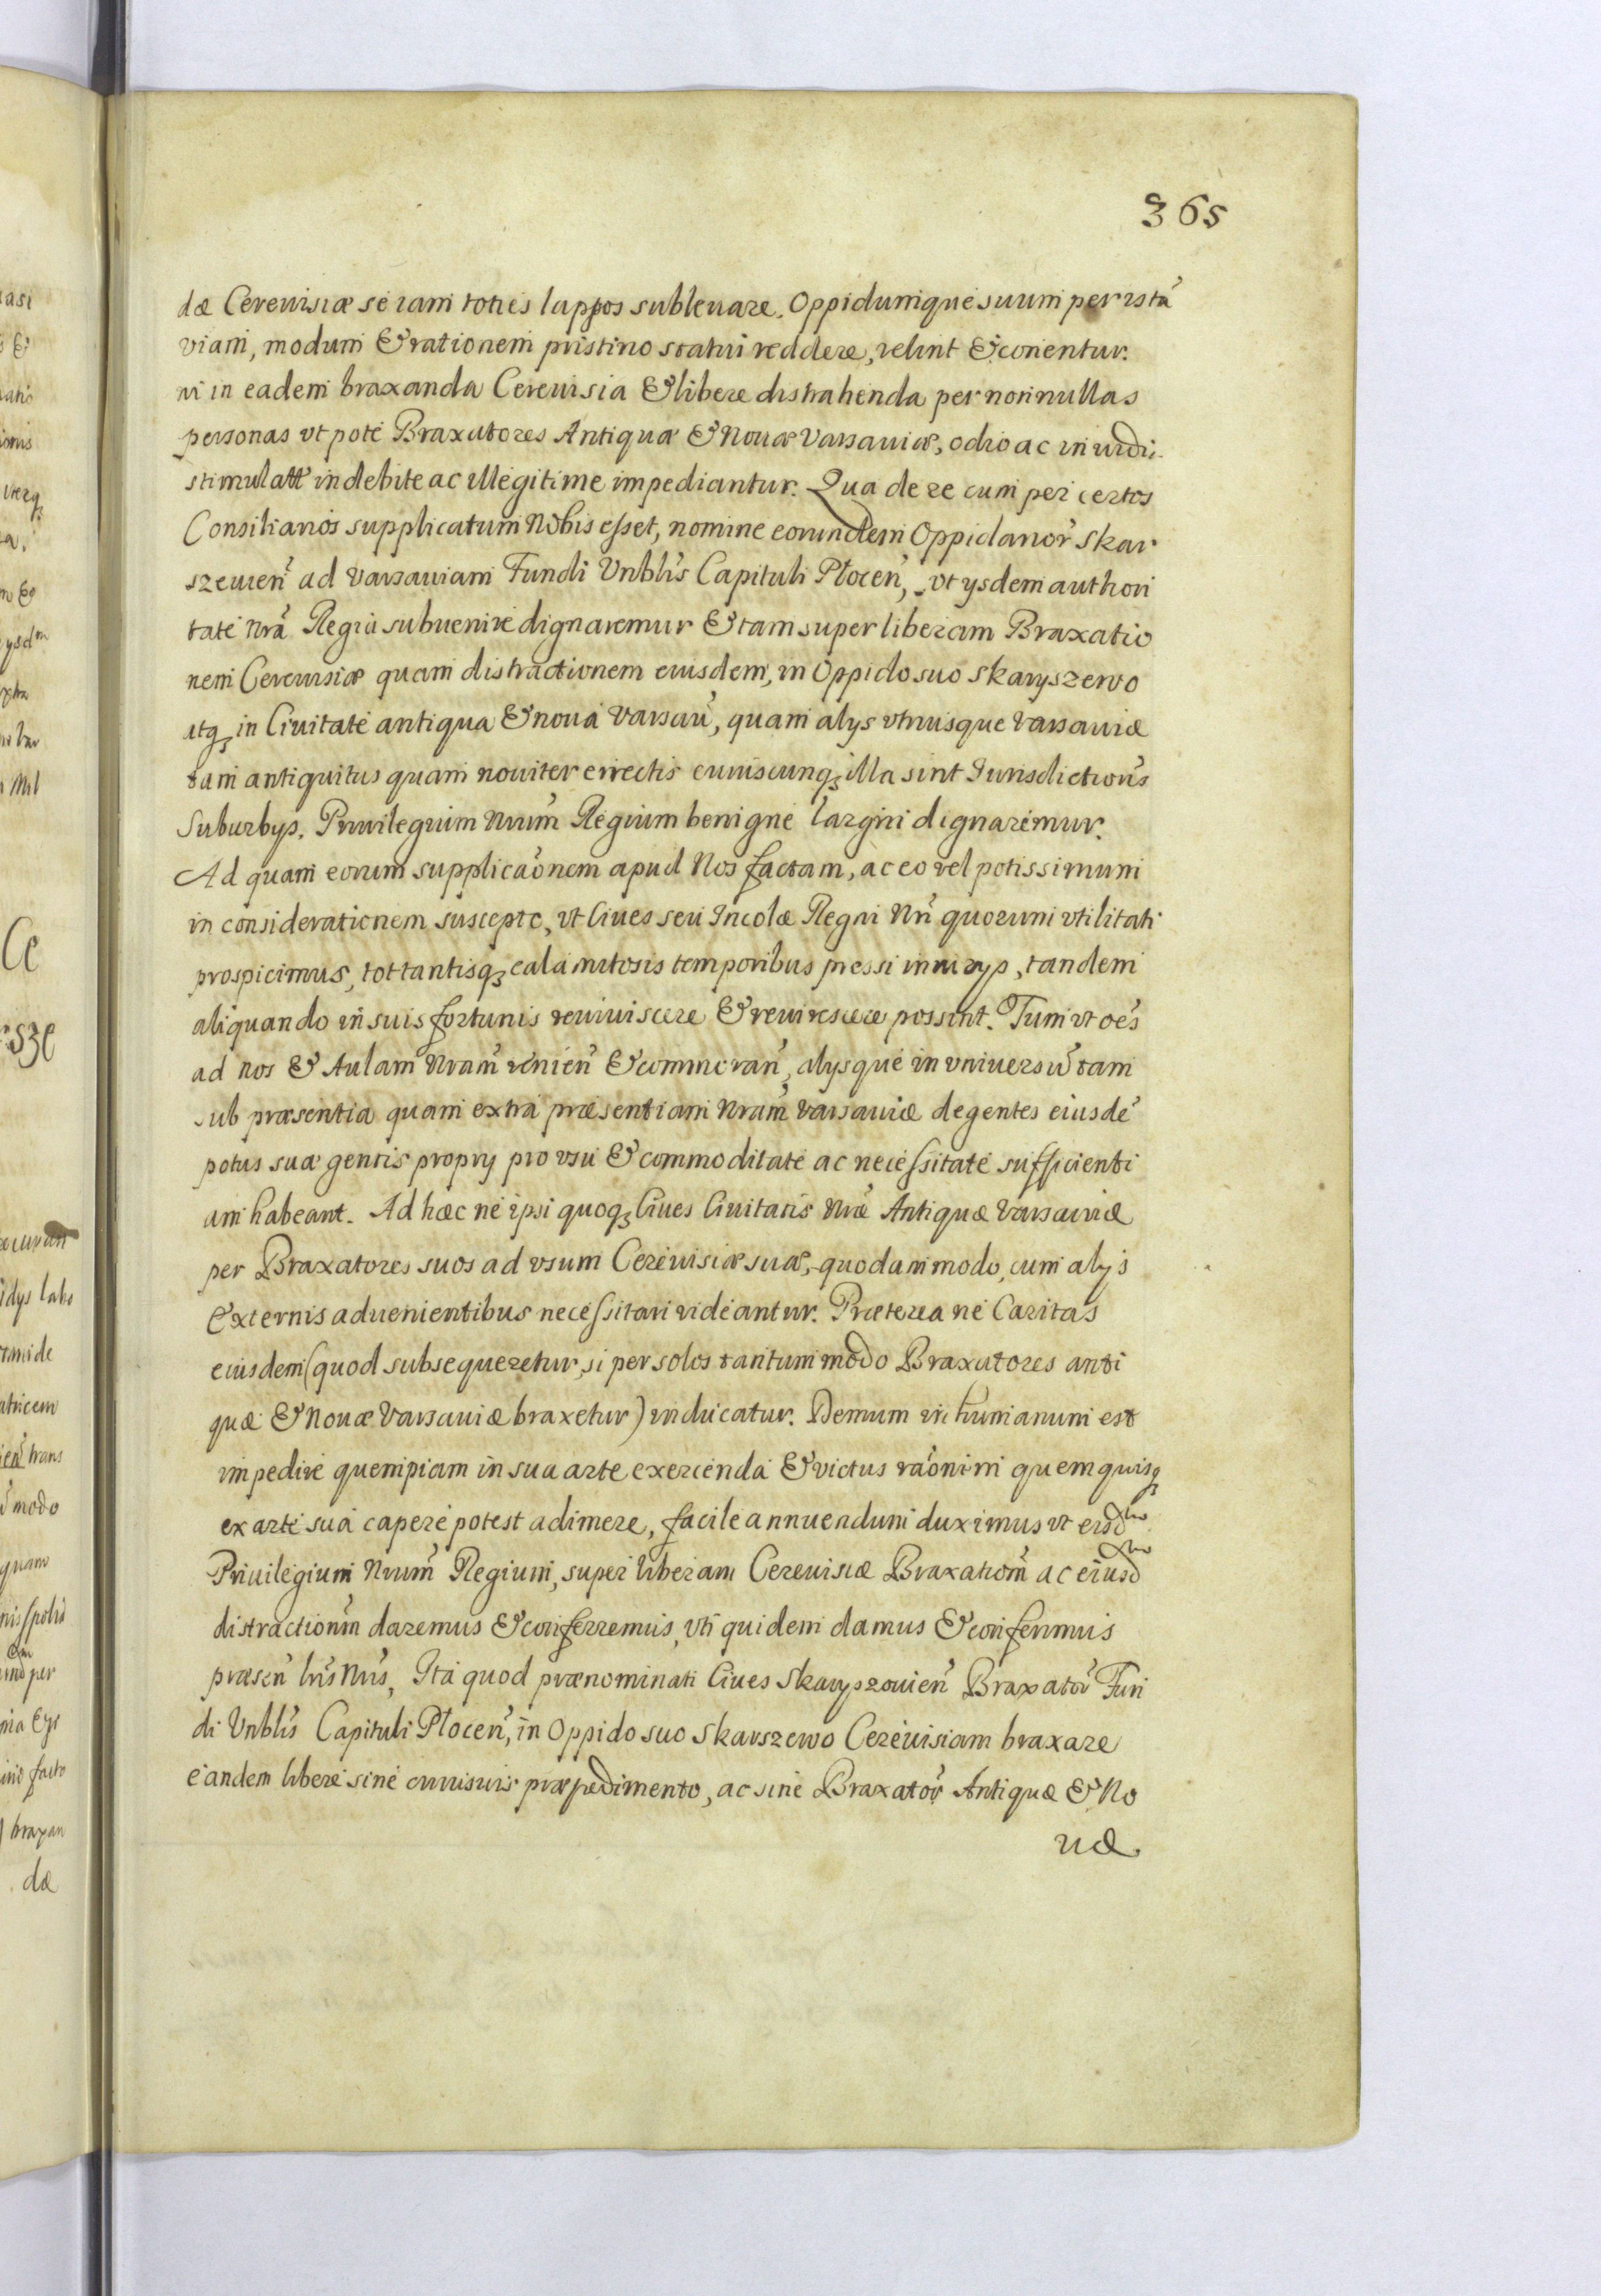 365
dæ Cereuisiæ se iam toties lapsos subleuare. Oppidumque suum per istã
viam, modum & rationem pristino statui reddere, velint & conentur.
ni in eadem braxanda Cereuisia & libere distrahenda per nonnullas
personas vt poté Braxatores Antiquæ & Nouæ Varsauiæ, odio ac inuidi
stimulati indebite ac illegitime impediantur. Qua de re cum per certos
Consiliarios supplicatum Nobis esset, nomine eorundem Oppidanor̃ Skar
szeuien̄ ad Varsauiam Fundi Vnblis̄ Capituli Płocen̄, vt ysdem authori
tate nr̄a Regia subuenire dignaremur & tam super liberam Braxatio
nem Cereuisiæ quam distractionem eiusdem, in Oppido suo Skaryszewo
atq; in Ciuitate antiqua & noua Varsau̅, quam alys vtriusque Varsauiæ
tam antiquitus quam nouiter errectis cuiuscunq; illa sint Iurisdictionis̄
Suburbys. Priuilegium Nrum̄ Regium benigne largiri dignaremur.
Ad quam eorum supplicaōnem apud Nos factam, ac eo vel potissimum
in considerationem suscepto, vt Ciues seu Incolæ Regni Nrī quorum vtilitati
prospicimus, tot tantisq; calamitosis temporibus pressi iniurys, tandem
aliquando in suis fortunis reuiuiscere & reuirescere possint. Tum vt oēs
ad nos & Aulam Nram̄ venien̄ & commoran̄, alysque in vniuersū tam
sub præsentia quam extra præsentiam Nram̄ Varsauiæ degentes eiusdē
potus suæ gentis propry pro vsu & commoditate ac necessitate sufficienti
am habeant. Ad hæc ne ipsi quoq; Ciues Ciuitatis Nrǣ Antiquæ Varsauiæ
per Braxatores suos ad vsum Cereuisiæ suæ, quodammodo, cum alys
Externis aduenientibus necessitari videantur. Præterea ne Caritas
eiusdem (quod subsequeretur, si per solos tantummodo Braxatores anti
quæ & Nouæ Varsauiæ braxetur) inducatur. Demum inhumanum est
impedire quempiam in sua arte exercenda & victus raōnem quem quisq;
ex arte sua capere potest adimere, facile annuendum duximus vt eisdm
Priuilegium Nrum̄ Regium, super liberam Cereuisiæ Braxationm̄ ac eiusdm
distractionm̄ daremus & conferremus, vti quidem damus & conferimus
præsen̄ lris̄ Nris̄, Ita quod prænominati Ciues Skaryszouien̄ Braxator̄ Fun
di Vnblis̄ Capituli Płocen̄, in Oppido suo Skarszewo Cereuisiam braxare
eandem libere sine cuiusuis præpedimento, ac sine Braxator̄ Antiquæ & No
uæ